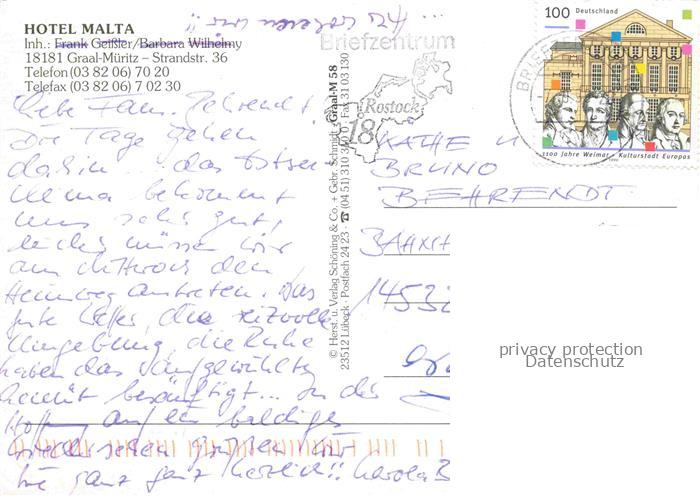 ... wohnen wir!!
HOTEL MALTA
Inh.: Frank Geißler/Barbara Wilhelmy
18181 Graal-Müritz – Strandstr. 36
Telefon (03 82 06) 70 20
Telefax (03 82 06) 7 02 30
Liebe Fam. Behrendt!
Die Tage gehen
dahin... das Ostsee-
klima bekommt
uns sehr gut,
leider müssen wir
am Mittwoch den
Heimweg antreten. Das
gute Wetter, die reizvolle
Umgebung, die Ruhe
haben das aufgewühlte
Gemüt besänftigt... In der
Hoffnung auf ein baldiges
Wiedersehen grüßen wir
Sie ganz ganz herzlich!! Carola B
© Herst. u. Verlag Schöning & Co. + Gebr. Schmidt · Graal-M 58
23512 Lübeck · Postfach 24 23 · ☎ (04 51) 310 30 · Fax 31 03 130
Briefzentrum
Rostock
18
BRIEFZ
100 Deutschland
1100 Jahre Weimar · Kulturstadt Europas
KÄTHE u.
BRUNO
BEHRENDT
BAHNH
1453
privacy protection
Datenschutz